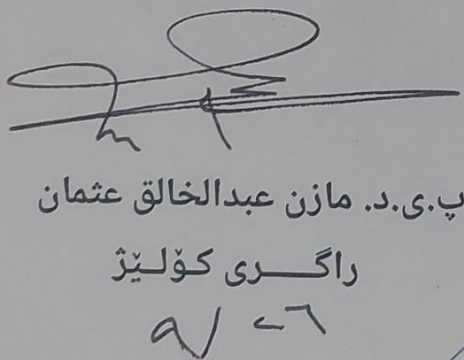 پ.ی.د. مازن عبدالخالق عثمان
راگری کۆلێژ
٩/ ٢٦